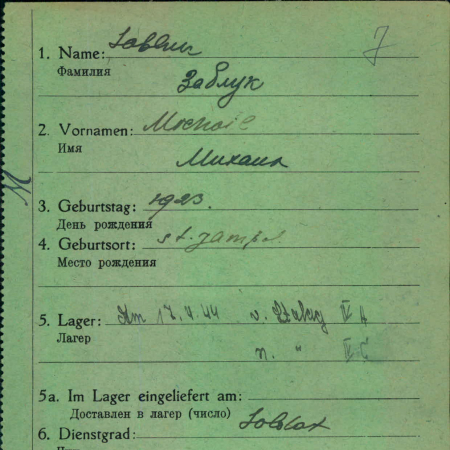 1. Name:
7
Фамилия Заблук
2. Vornamen: Michail
Имя Михаил
3. Geburtstag: 1923.
День рождения
4. Geburtsort: st. Jampol
Место рождения
M
5. Lager: Am 17.4.44 v. Stalag IV A
Лагер n. " IV C
5a. Im Lager eingeliefert am:
Доставлен в лагер (число)
6. Dienstgrad: Soldat